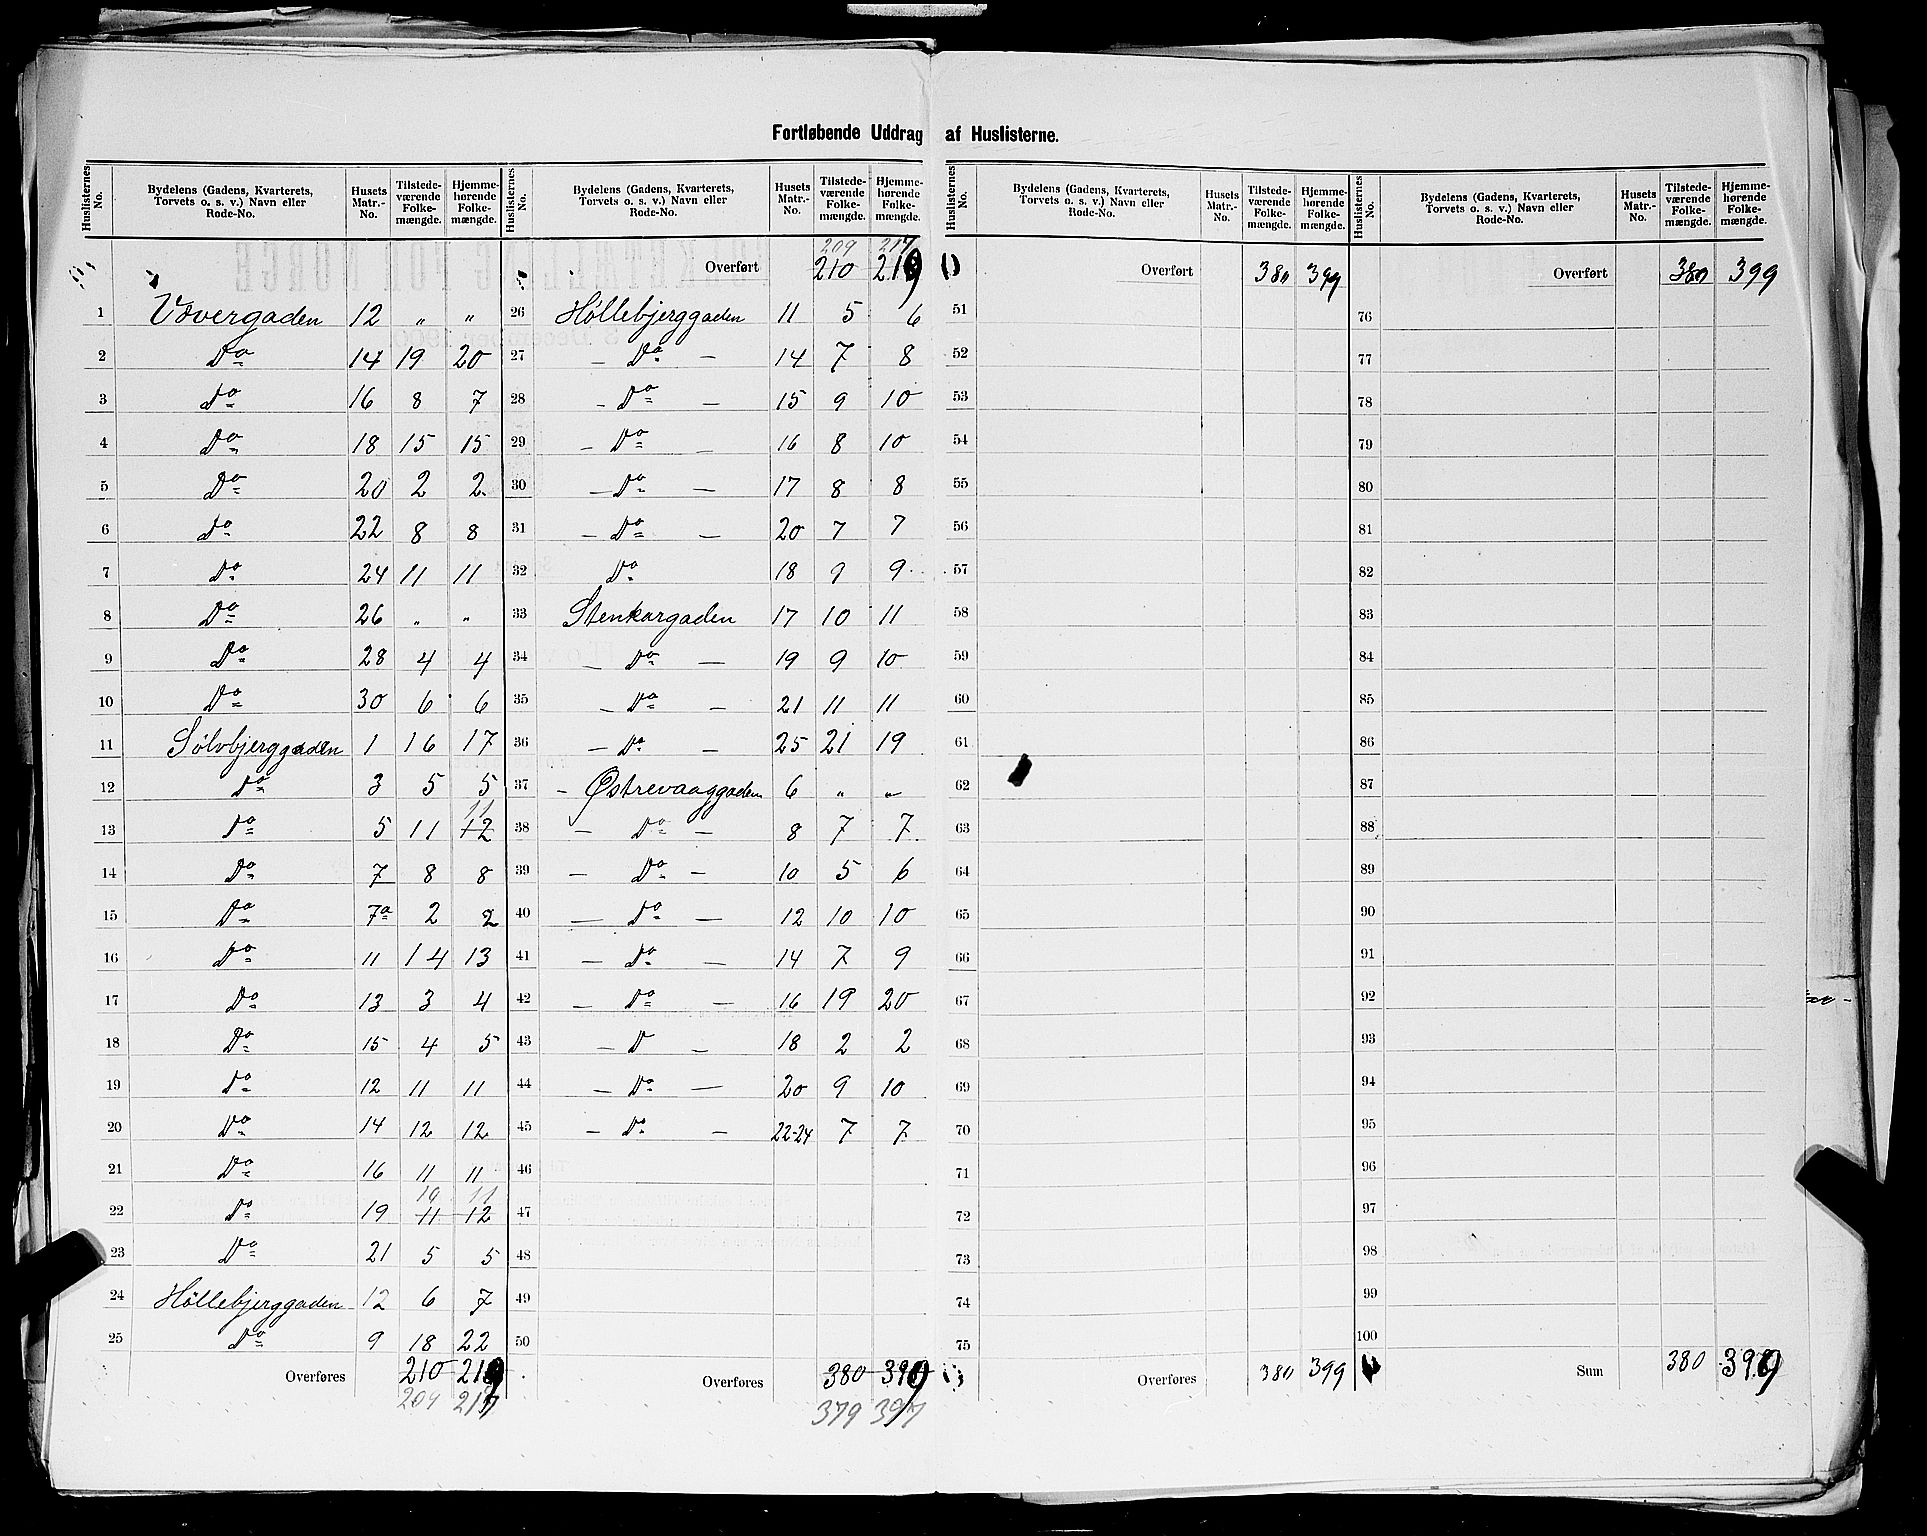 Fortløbende Uddrag af Huslisterne.
Huslisternes No. | Bydelens (Gadens, Kvarterets, Torvets o. s. v.) Navn eller Rode-No. | Husets Matr.-No. | Tilstedeværende Folkemængde. | Hjemmehørende Folkemængde.
1 Vævergaden 12 „ „
2 Do 14 19 20
3 Do 16 8 7
4 Do 18 15 15
5 Do 20 2 2
6 Do 22 8 8
7 Do 24 11 11
8 Do 26 „ „
9 Do 28 4 4
10 Do 30 6 6
11 Sølvbjerggaden 1 16 17
12 Do 3 5 5
13 Do 5 11 12 11
14 Do 7 8 8
15 Do 7a 2 2
16 Do 11 14 13
17 Do 13 3 4
18 Do 15 4 5
19 Do 12 11 11
20 Do 14 12 12
21 Do 16 11 11
22 Do 19 11 10 12 11
23 Do 21 5 5
24 Høllebjerggaden 12 6 7
25 Do 9 18 22
Overføres 210 219
209 217
Huslisternes No. | Bydelens (Gadens, Kvarterets, Torvets o. s. v.) Navn eller Rode-No. | Husets Matr.-No. | Tilstedeværende Folkemængde. | Hjemmehørende Folkemængde.
209 217
Overført 210 219
26 Høllebjerggaden 11 5 6
27 – Do – 14 7 8
28 – Do – 15 9 10
29 – Do – 16 8 10
30 – Do – 17 8 8
31 – Do – 20 7 7
32 Do 18 9 9
33 Stenkargaden 17 10 11
34 – Do – 19 9 10
35 – Do – 21 11 11
36 – Do – 25 21 19
37 – Østrevaaggaden 6 „ „
38 – Do – 8 7 7
39 – Do – 10 5 6
40 – Do – 12 10 10
41 – Do – 14 7 9
42 – Do – 16 19 20
43 – D – 18 2 2
44 – Do – 20 9 10
45 – Do – 22-24 7 7
46
47
48
49
50
Overføres 380 399
379 397
Huslisternes No. | Bydelens (Gadens, Kvarterets, Torvets o. s. v.) Navn eller Rode-No. | Husets Matr.-No. | Tilstedeværende Folkemængde. | Hjemmehørende Folkemængde.
Overført 380 399
51
52
53
54
55
56
57
58
59
60
61
62
63
64
65
66
67
68
69
70
71
72
73
74
75
Overføres 380 399
Huslisternes No. | Bydelens (Gadens, Kvarterets, Torvets o. s. v.) Navn eller Rode-No. | Husets Matr.-No. | Tilstedeværende Folkemængde. | Hjemmehørende Folkemængde.
Overført 380 399
76
77
78
79
80
81
82
83
84
85
86
87
88
89
90
91
92
93
94
95
96
97
98
99
100
Sum 380 399